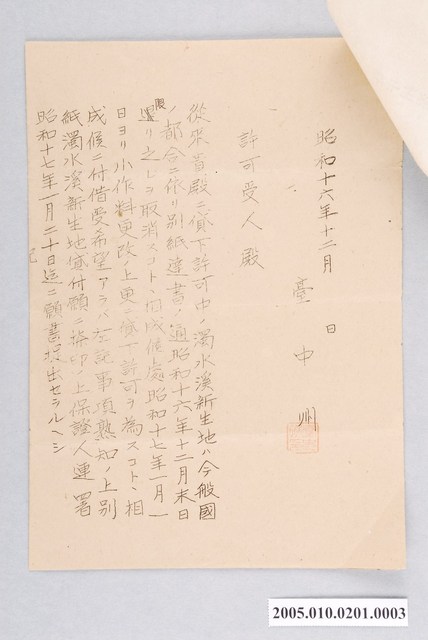 昭和十六年十二月　日
臺中州
許可受人殿
從来貴殿ニ貸下許可中ノ濁水溪新生地ハ今般國
ノ都合ニ依リ別紙達書ノ通昭和十六年十二月末日
限リ之レヲ取消スコトヽ相成候處昭和十七年一月一
日ヨリ小作料更改ノ上更ニ貸下許可ヲ為スコトヽ相
成候ニ付借受希望アラバ左記事項熟知ノ上別
紙濁水溪新生地貸付願ニ捺印ノ上保證人連署
昭和十七年一月二十日迄ニ願書提出セラルヘシ
記
2005.010.0201.0003